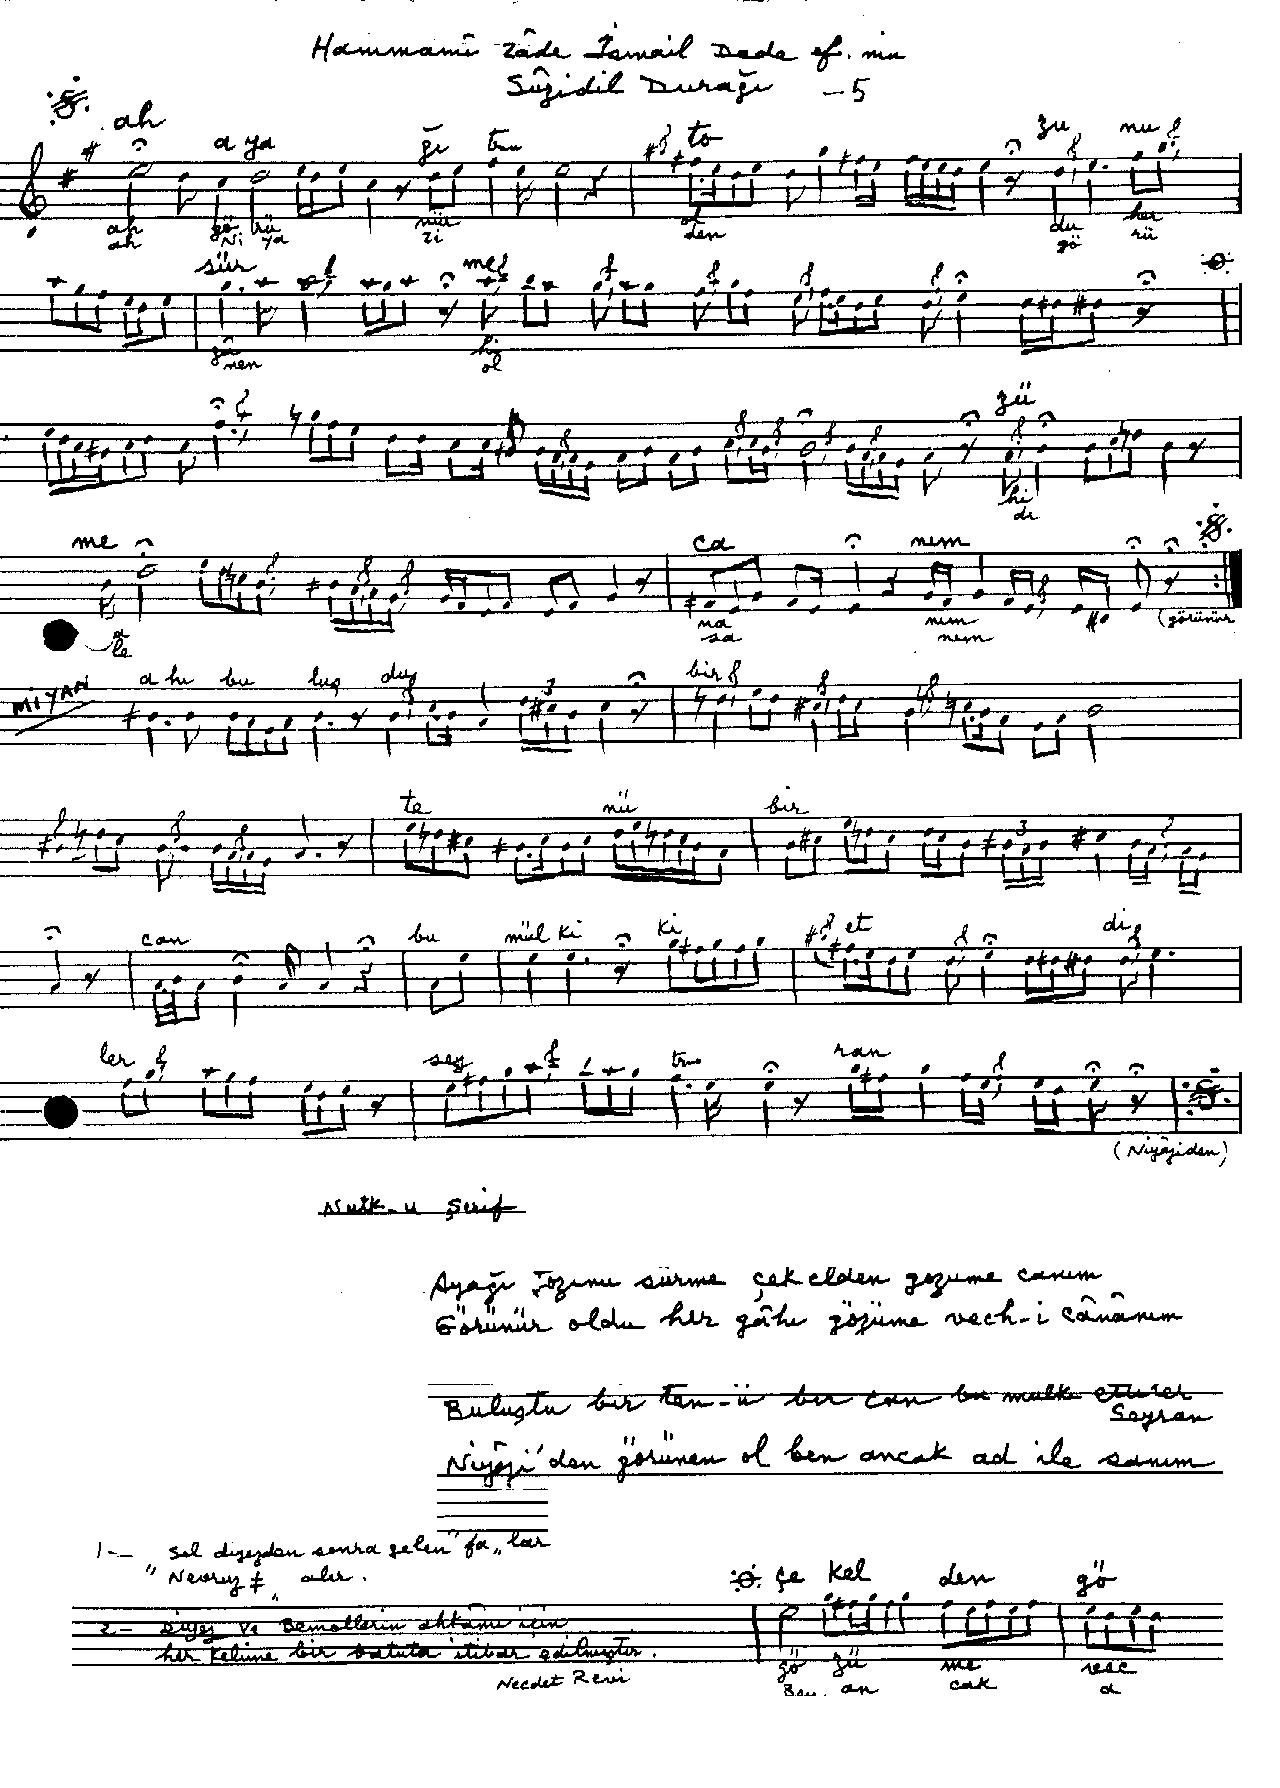 Hammamî zâde İsmail Dede ef. nin
Sûzidil Durağı -5
ah a ya ğı tu to zu nu
ah gö rü nür ol du her
ah Ni ya zi den gö rü
sür me
gâ hi
nen ol
zü
hi
di
me ca nım
na nım
le sa nem (görünür
MİYAN ah bu luş du bir
te nü bir
can bu mül ki ki et di
ler sey ran
(Niyâziden)
Nutk-u Şerif
Ayağı tozunu sürme çek elden gözüme canım
Görünür oldu her gâhi gözüme vech-i cânânım
Buluştu bir ten-ü bir can bu mülkü ettiler
Seyran
Niyâzi'den görünen ol ben ancak ad ile sanım
1-- Sol diyezden sonra gelen "fa" lar
"Nevruz ‡" alır.
2- Diyez ve Bemollerin ahkâmı için
her kelime bir batuta itibar edilmiştir.
Necdet
çe kel den gö
gö zü me vec
an cak a